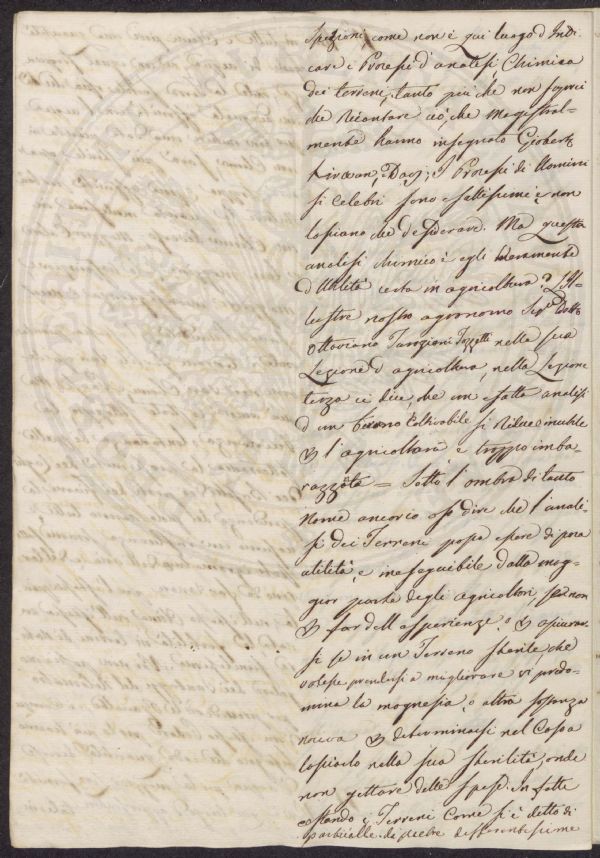 spezioni, come non è qui luogo d'Indi
care i Processi d'analesi Chimica
dei terreni, tanto più che non saprei
che Ricantare ciò, che Magistral=
mente hanno insegnato Giobert,
Kirwan, Davj; I Processi di Uomini
si celebri sono esattissimi e non
lasciano che desiderare. Ma questa
analesi chimica è egli veramente
d'Utilità certa in agricoltura? L'Il=
lustre nostro agronomo Sig.r Dott.
Ottaviano Targioni Tozzetti nelle sue
Lezione d'agricoltura, nella Lezione
terza ci dice, che un esatta analesi
d'un terreno Coltivabile si riduce inutile
l'agricoltura e troppo imba=
razzata = Sotto l'ombra di tanto
Nome ancor io oso dire che l'anali=
si dei Terreni possa essere di poca
utilità, e ineseguibile dalla mag=
gior parte degli agricoltori, se non
far dell'esperienze, o
si se in un Terreno sterile, che
volesse prendersi a migliorare vi predo=
mina la magnesia, o altra sostanza
nociva determinarsi nel Caso a
lasciarlo nella sua sterilità, onde
non gettare delle spese. In fatti
costando i Terreni Come si è detto di
particelle di pietre differentissime